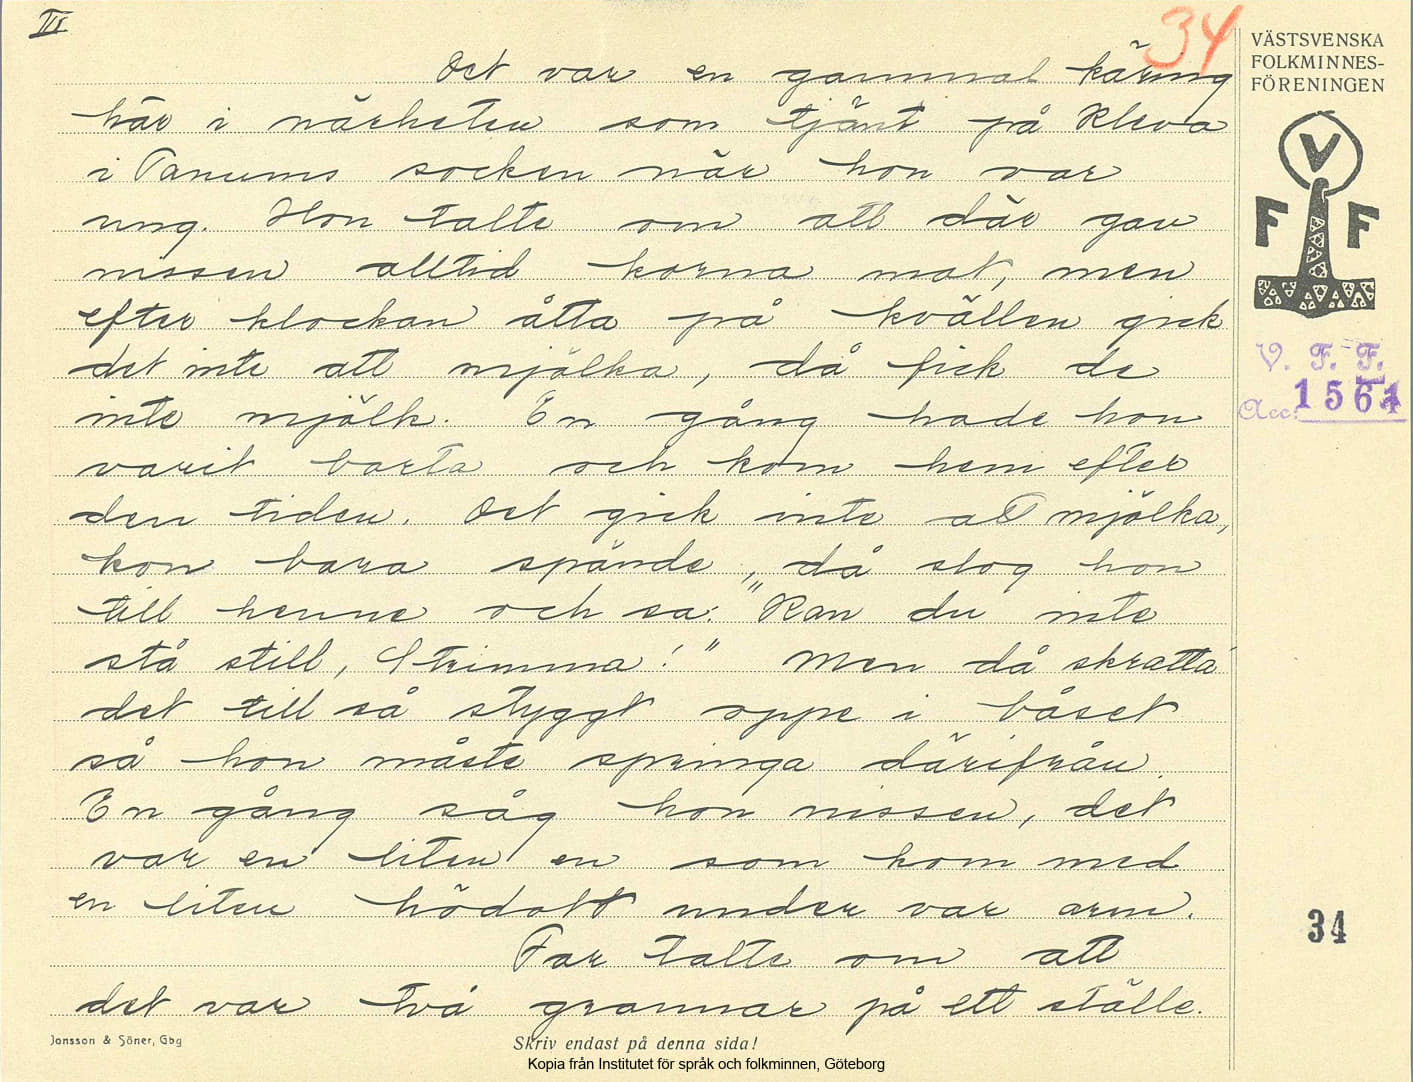 III
34
VÄSTSVENSKA
FOLKMINNES-
FÖRENINGEN
V
F F
V. F. F.
Acc: 1561
Det var en gammal käring
här i närheten som tjänt på Kleva
i Tanums socken när hon var
ung. Hon talte om att där gav
nissen alltid korna mat, men
efter klockan åtta på kvällen gick
det inte att mjölka, då fick de
inte mjölk. En gång hade hon
varit borta och kom hem efter
den tiden. Det gick inte att mjölka,
kon bara spände, då slog hon
till henne och sa: "Kan du inte
stå still, Strimma!" Men då skratta'
det till så styggt oppe i båset
så hon måste springa därifrån.
En gång såg hon nissen, det
var en liten en som kom med
en liten hödott under var arm.
Far talte om att
det var två grannar på ett ställe.
34
Jonsson & Söner, Gbg
Skriv endast på denna sida!
Kopia från Institutet för språk och folkminnen, Göteborg